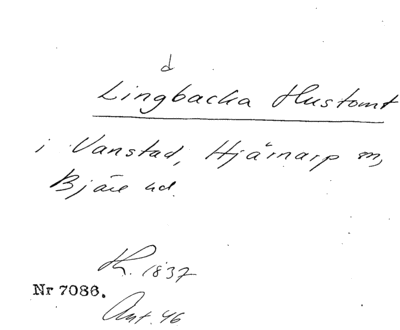 d
Lingbacka Hustomt
i Vanstad, Hjärnarp m,
Bjäre hd.
H. 1837
Nr 7086.
Ant. 46